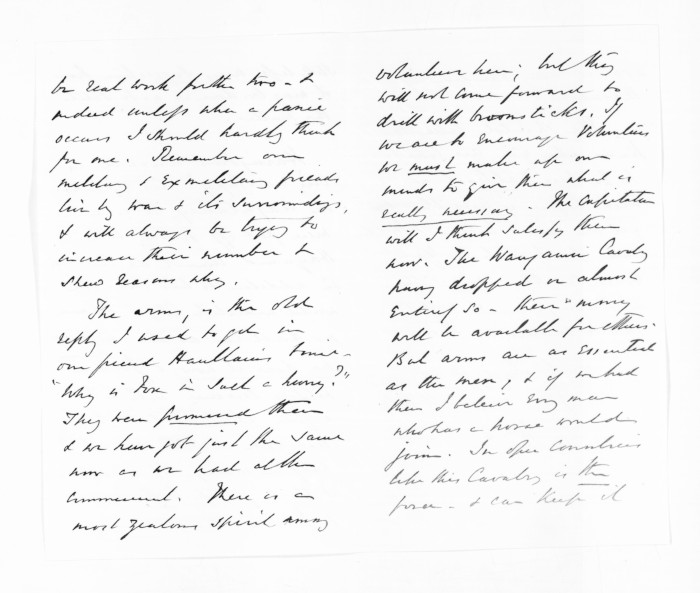 be real work for the two - &
indeed unless when a panic
occurs I should hardly think
for one. Remember our
military & Ex military friends
live by war & its surroundings,
& will always be trying to
increase their number &
shew reasons why.
The arms, is the old
reply I used to get in
our friend Haultain's time -
"Why is Fox in such a hurry?"
They were promised then
& we have got just the same
now as we had at the
commencement. There is a
most zealous spirit among
volunteers here; but they
will not come forward to
drill with broomsticks. If
we are to encourage Volunteers
we must make up our
minds to give them what is
really necessary. The capitation
will I think satisfy them
now. The Wanganui Cavalry
having dropped or almost
entirely so - their money
will be available for others.
But arms are as essential
as the men, & if we had
them I believe every man
who has a horse would
join. In open countries
like this Cavalry is the
force - & can keep it